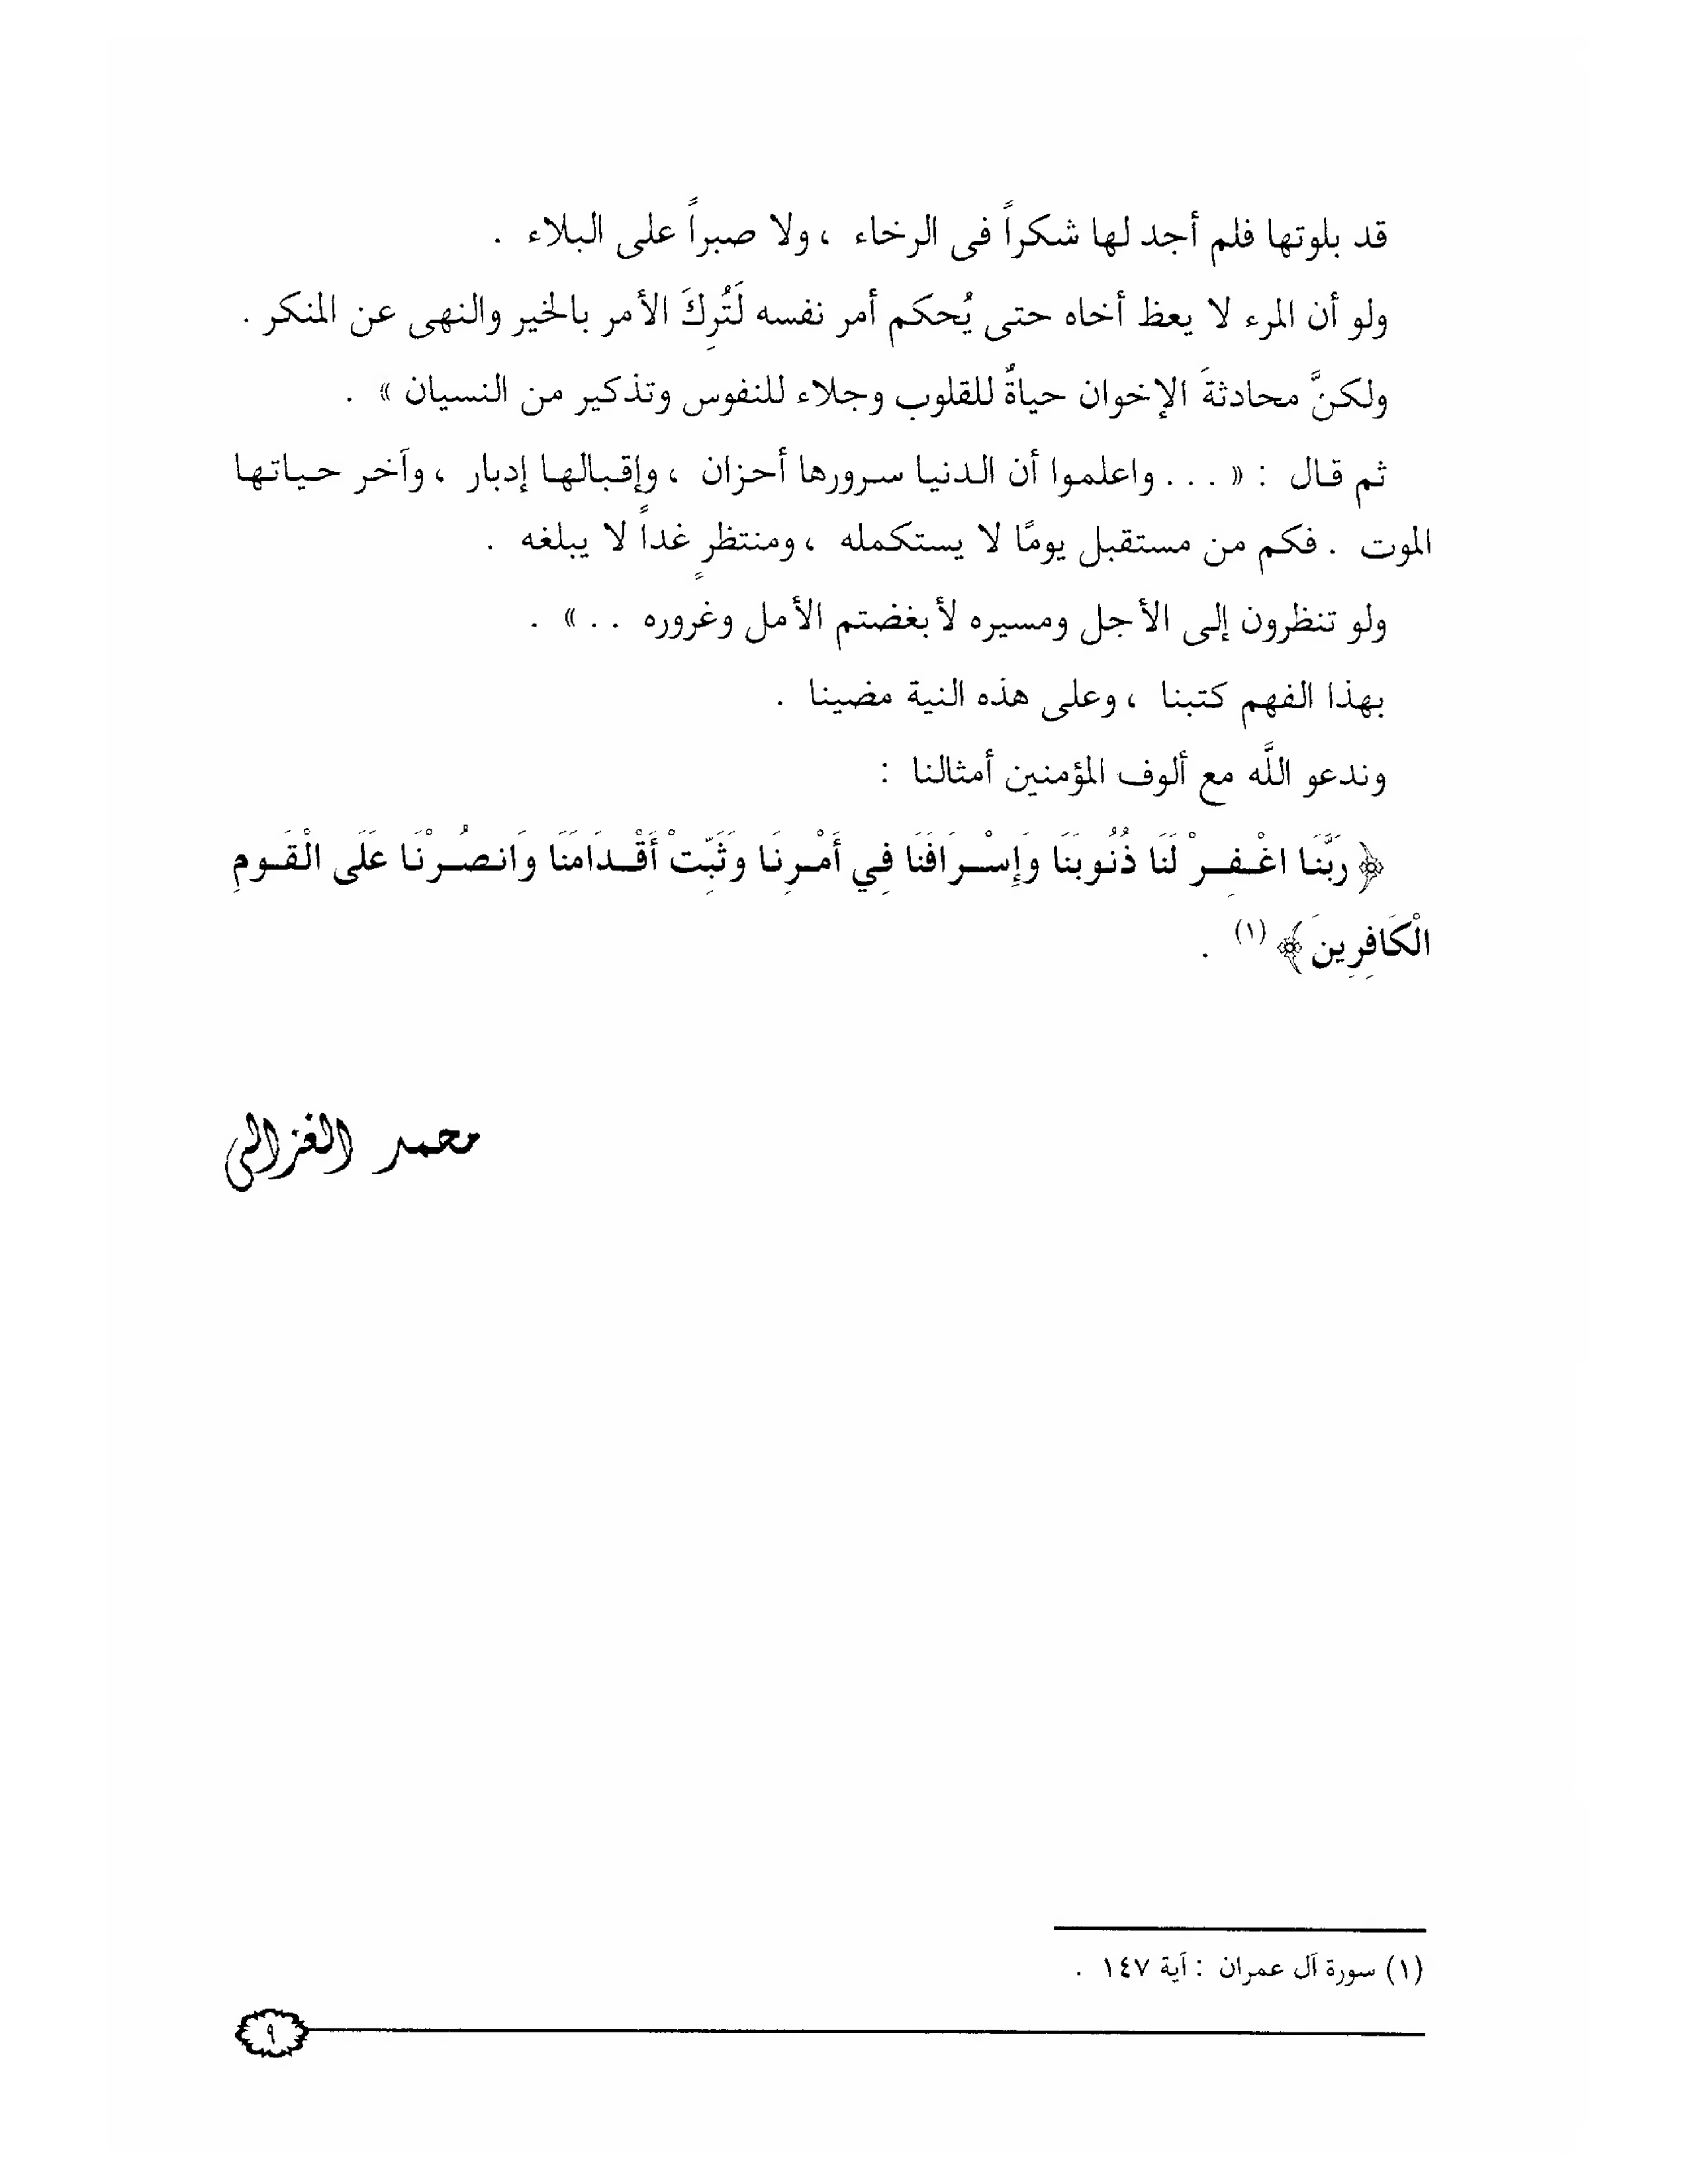 قد بلوتها فلم أجد لها شكراً فى الرخاء ، ولا صبراً على البلاء .
ولو أن المرء لا يعظ أخاه حتى يُحكم أمر نفسه لَتُرِكَ الأمر بالخير والنهى عن المنكر .
ولكنَّ محادثةَ الإخوان حياةٌ للقلوب وجلاء للنفوس وتذكير من النسيان » .
ثم قال : « ... واعلموا أن الدنيا سرورها أحزان ، وإقبالها إدبار ، وآخر حياتها
الموت . فكم من مستقبل يومًا لا يستكمله ، ومنتظرٍ غداً لا يبلغه .
ولو تنظرون إلى الأجل ومسيره لأبغضتم الأمل وغروره .. » .
بهذا الفهم كتبنا ، وعلى هذه النية مضينا .
وندعو اللَّه مع ألوف المؤمنين أمثالنا :
﴿ رَبَّنَا اغْفِرْ لَنَا ذُنُوبَنَا وَإِسْرَافَنَا فِي أَمْرِنَا وَثَبِّتْ أَقْدَامَنَا وَانصُرْنَا عَلَى الْقَومِ
الْكَافِرِينَ ﴾ (١) .
محمد الغزالى
(١) سورة آل عمران : آية ١٤٧ .
٩